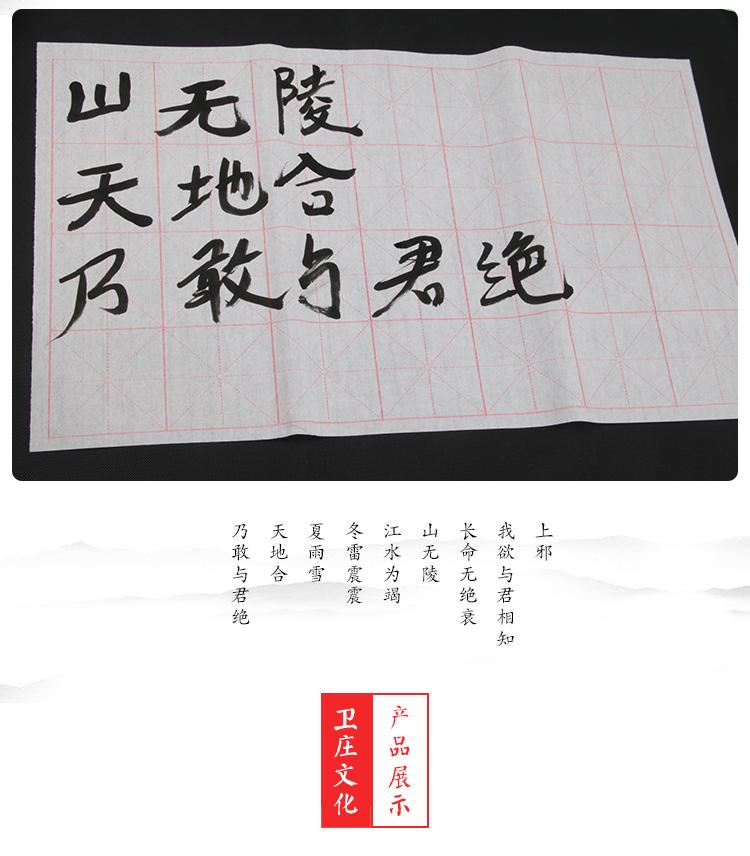 山无陵
天地合
乃敢与君绝
上邪
我欲与君相知
长命无绝衰
山无陵
江水为竭
冬雷震震
夏雨雪
天地合
乃敢与君绝
卫庄文化
产品展示